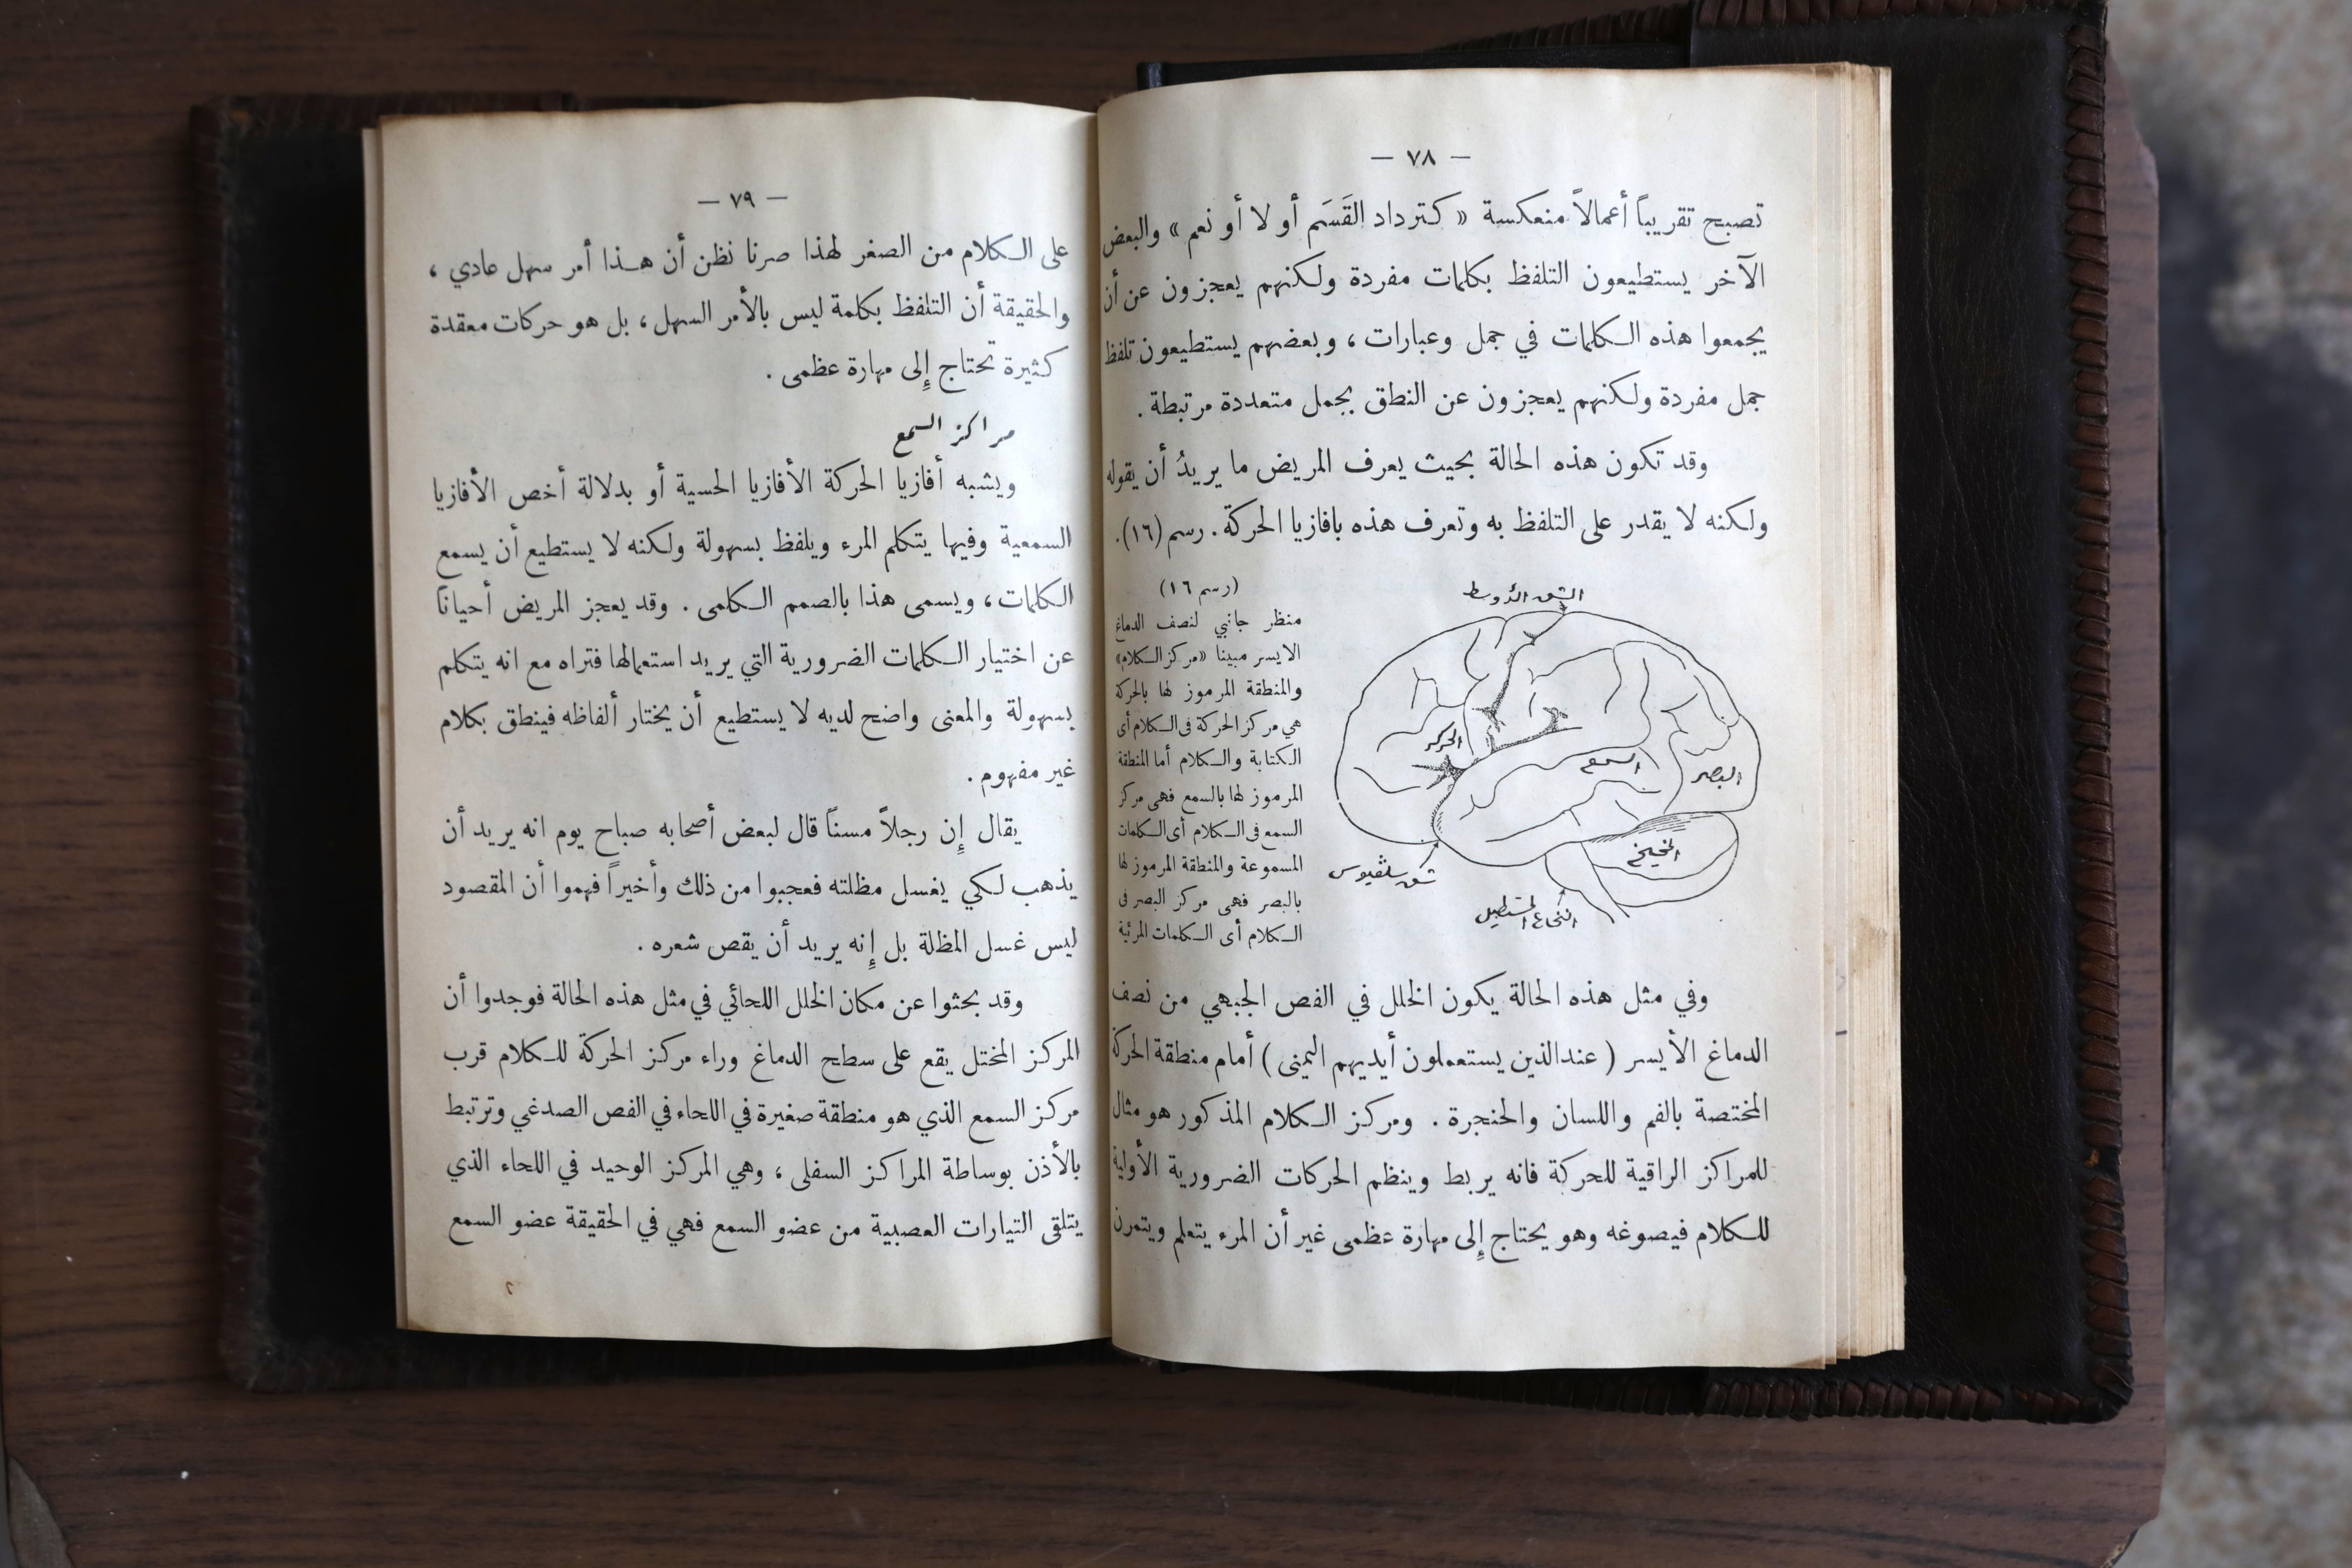 — ٧٨ —
تصبح تقريباً أعمالاً منعكسة « كترداد القَسَم أو لا أو نعم » والبعض
الآخر يستطيعون التلفظ بكلمات مفردة ولكنهم يعجزون عن أن
يجمعوا هذه الكلمات في جمل وعبارات ، وبعضهم يستطيعون تلفظ
جمل مفردة ولكنهم يعجزون عن النطق بجمل متعددة مرتبطة .
وقد تكون هذه الحالة بحيث يعرف المريض ما يريدُ أن يقوله
ولكنه لا يقدر على التلفظ به وتعرف هذه بافازيا الحركة . رسم (١٦).
الشق الأوسط
الحركة
السمع
البصر
المخيخ
شق سلفيوس
النخاع المستطيل
(رسم ١٦)
منظر جانبي لنصف الدماغ
الايسر مبينا «مركز الكلام»
والمنطقة المرموز لها بالحركة
هي مركز الحركة فى الكلام أى
الكتابة والكلام أما المنطقة
المرموز لها بالسمع فهى مركز
السمع فى الكلام أى الكلمات
المسموعة والمنطقة المرموز لها
بالبصر فهى مركز البصر فى
الكلام أى الكلمات المرئية
وفي مثل هذه الحالة يكون الخلل في الفص الجبهي من نصف
الدماغ الأيسر ( عند الذين يستعملون أيديهم اليمنى ) أمام منطقة الحركة
المختصة بالفم واللسان والحنجرة . ومركز الكلام المذكور هو مثال
للمراكز الراقية للحركة فانه يربط وينظم الحركات الضرورية الأولية
للكلام فيصوغه وهو يحتاج إلى مهارة عظمى غير أن المرء يتعلم ويتمرن
— ٧٩ —
على الكلام من الصغر لهذا صرنا نظن أن هذا أمر سهل عادي ،
والحقيقة أن التلفظ بكلمة ليس بالأمر السهل ، بل هو حركات معقدة
كثيرة تحتاج إلى مهارة عظمى .
مراكز السمع
ويشبه أفازيا الحركة الأفازيا الحسية أو بدلالة أخص الأفازيا
السمعية وفيها يتكلم المرء ويلفظ بسهولة ولكنه لا يستطيع أن يسمع
الكلمات ، ويسمى هذا بالصمم الكلامى . وقد يعجز المريض أحياناً
عن اختيار الكلمات الضرورية التي يريد استعمالها فتراه مع انه يتكلم
بسهولة والمعنى واضح لديه لا يستطيع أن يختار ألفاظه فينطق بكلام
غير مفهوم .
يقال إن رجلاً مسناً قال لبعض أصحابه صباح يوم انه يريد أن
يذهب لكي يغسل مظلته فعجبوا من ذلك وأخيراً فهموا أن المقصود
ليس غسل المظلة بل إنه يريد أن يقص شعره .
وقد بحثوا عن مكان الخلل اللحائي في مثل هذه الحالة فوجدوا أن
المركز المختل يقع على سطح الدماغ وراء مركز الحركة للكلام قرب
مركز السمع الذي هو منطقة صغيرة في اللحاء في الفص الصدغي وترتبط
بالأذن بوساطة المراكز السفلى ، وهي المركز الوحيد في اللحاء الذي
يتلقى التيارات العصبية من عضو السمع فهي في الحقيقة عضو السمع